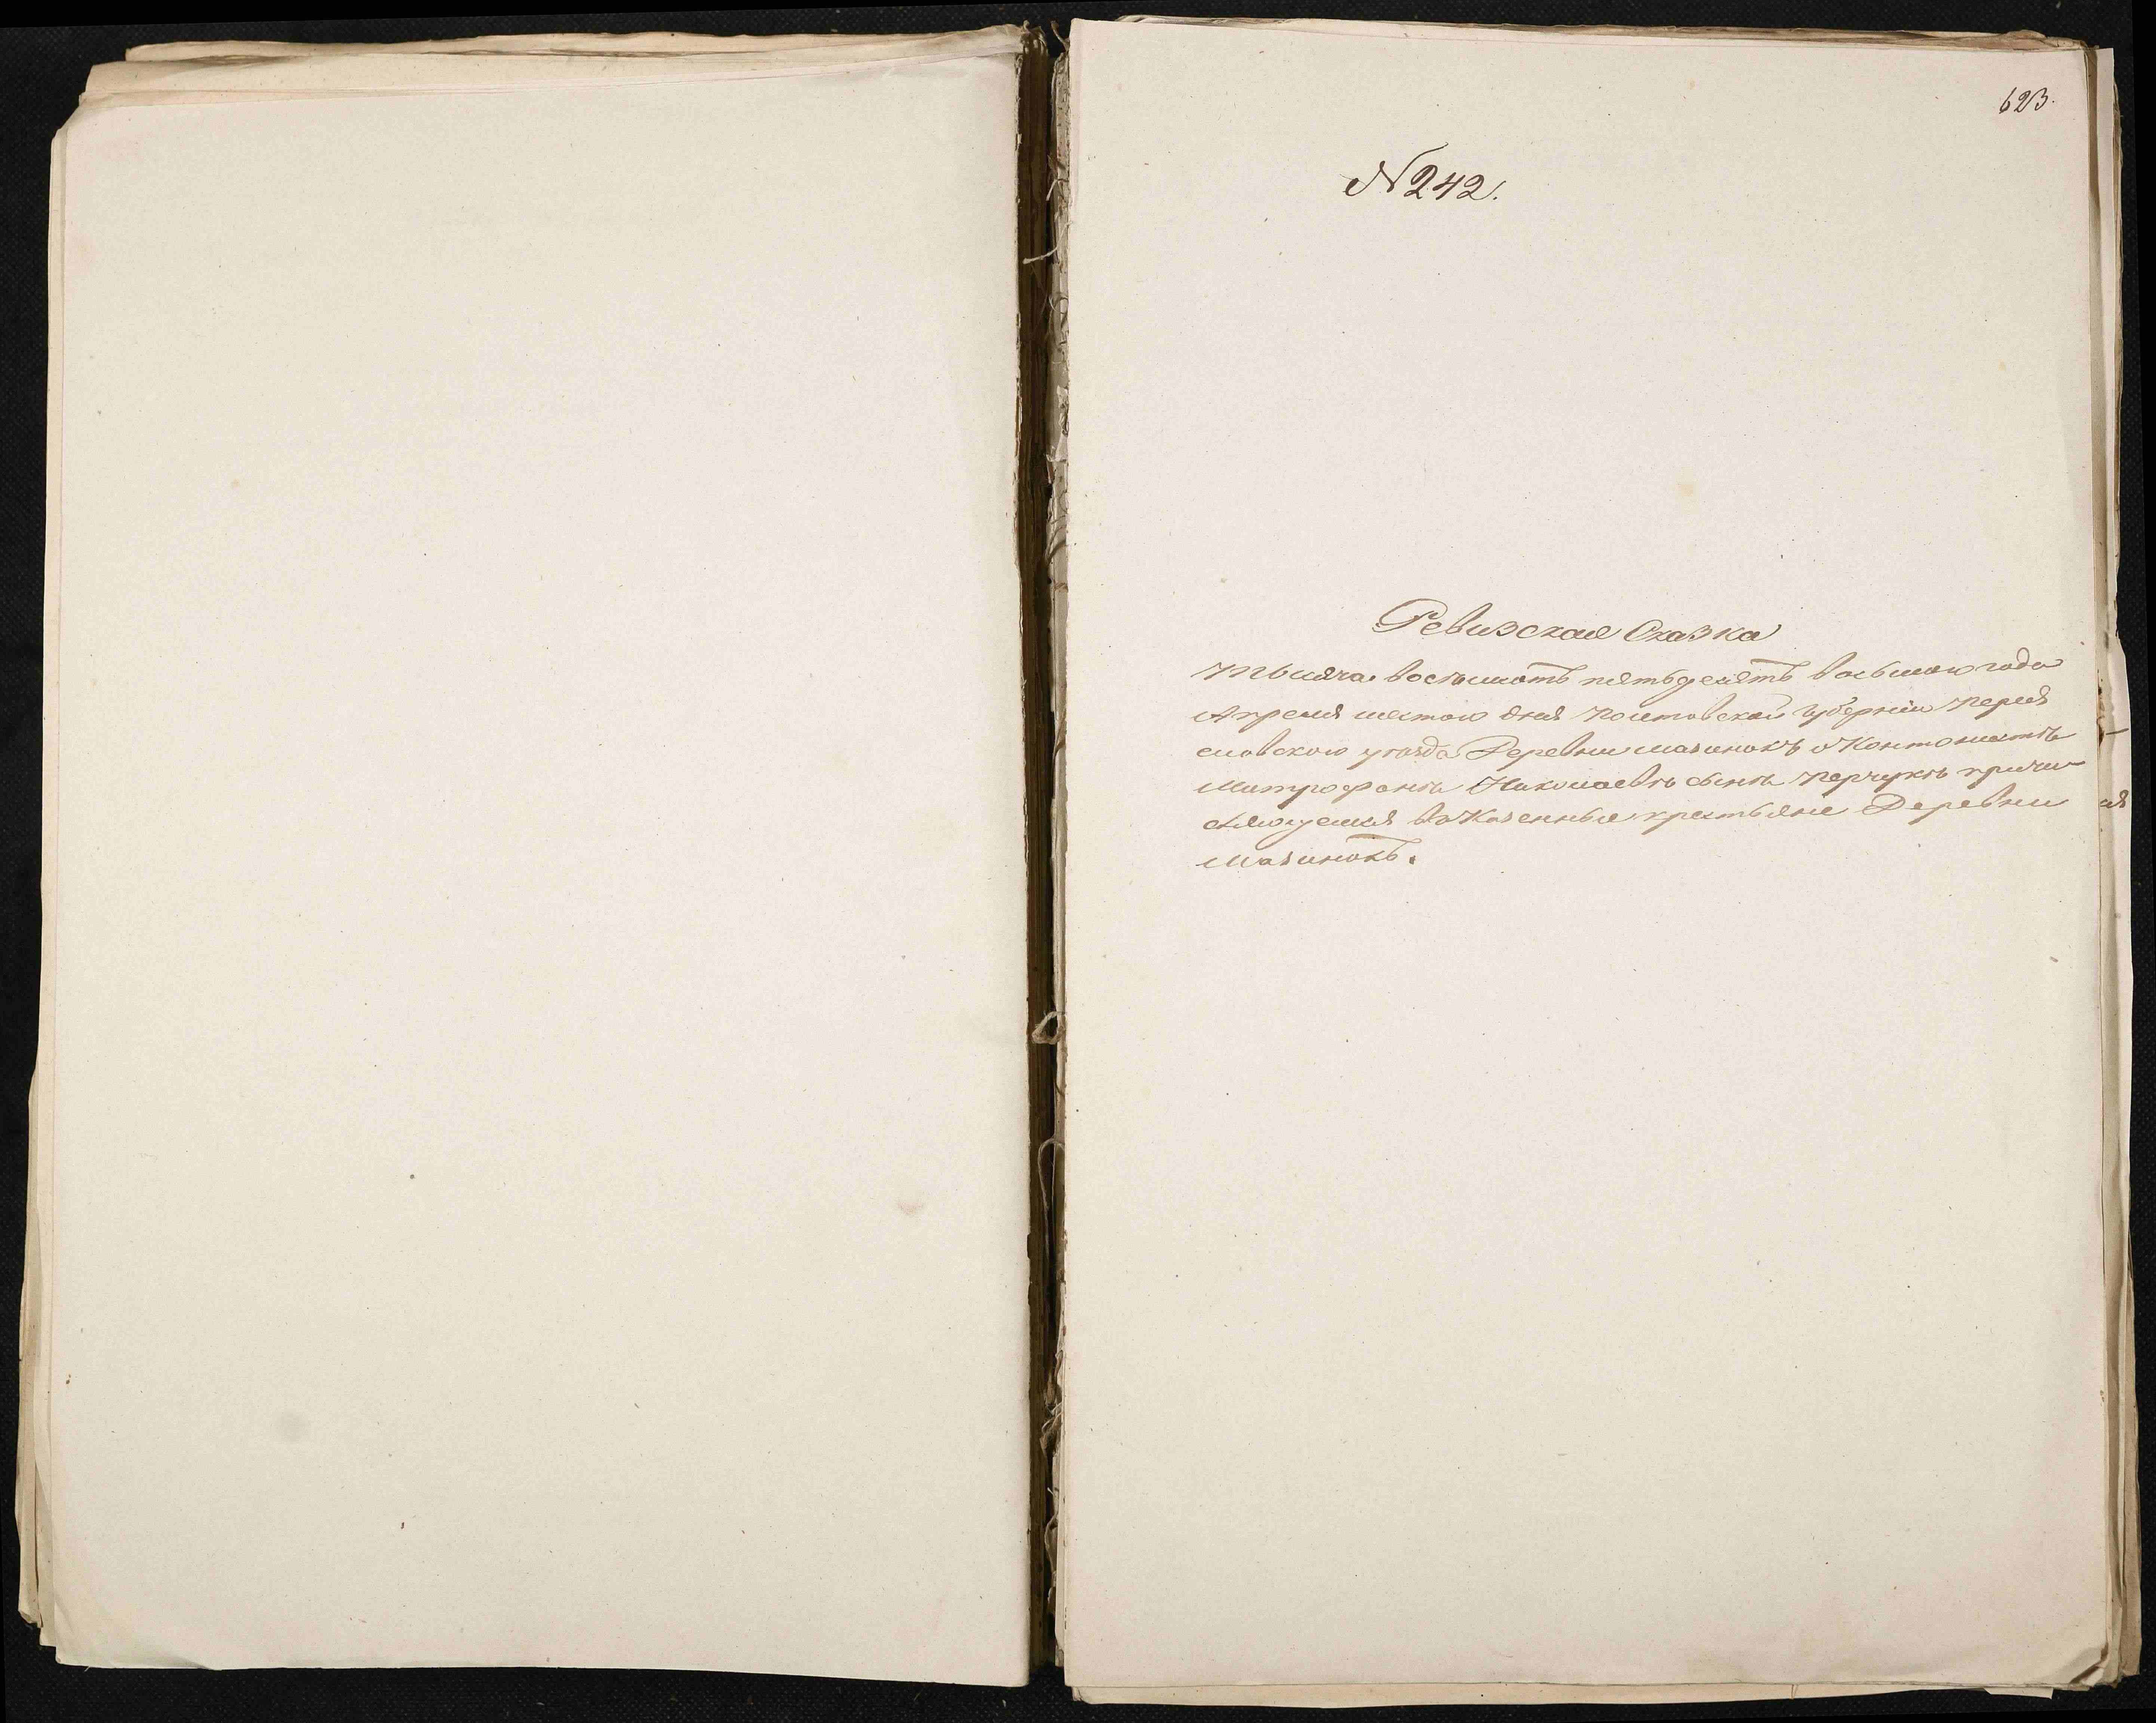 623.
N 242.
Ревизская Сказка
Тысяча восемьсотъ пятьдесятъ восьмого года
Апреля шестого дня Полтавской Губерніи Перея
словского уѣзда Деревни Мазинокъ о Контонистѣ
Митрофанѣ Николаевѣ сынѣ Перчукѣ причи
сляющемся въ Казенные крестьяне Деревни
Мазинокъ.